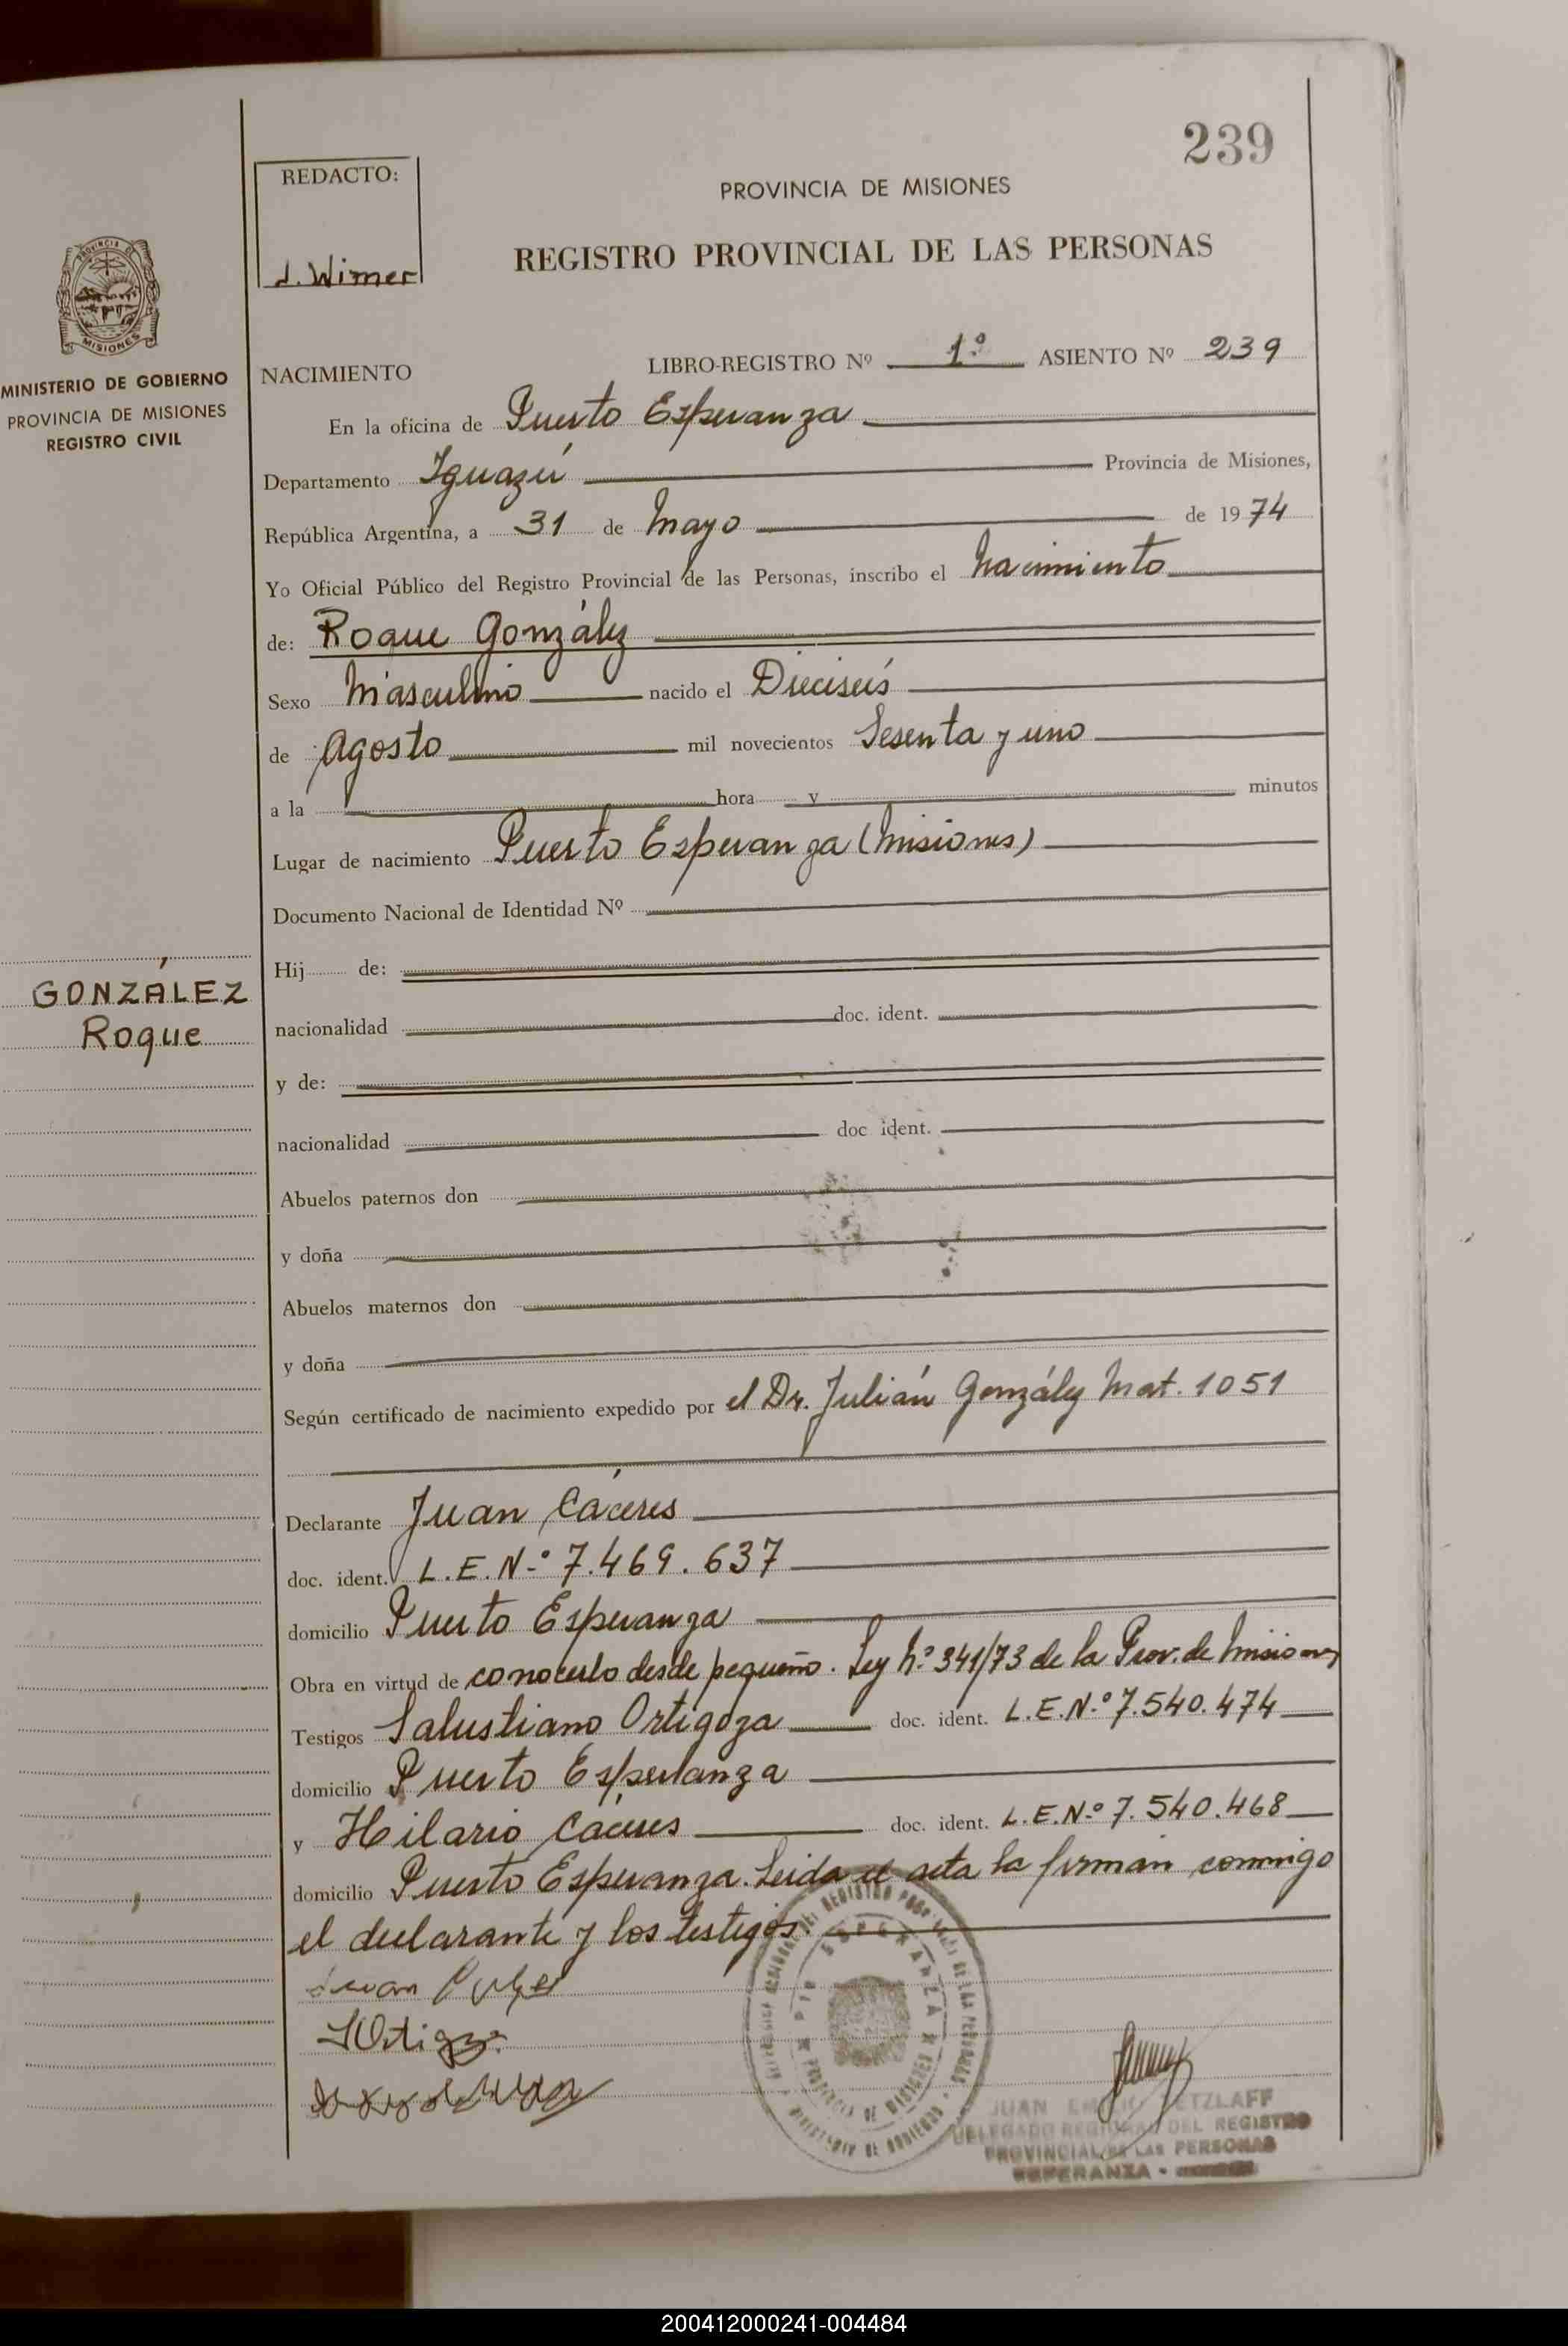 239
REDACTO:
J. Wimer
PROVINCIA DE MISIONES
REGISTRO PROVINCIAL DE LAS PERSONAS
PROVINCIA DE
MISIONES
MINISTERIO DE GOBIERNO
PROVINCIA DE MISIONES
REGISTRO CIVIL
NACIMIENTO LIBRO-REGISTRO Nº 1º ASIENTO Nº 239
En la oficina de Puerto Esperanza
Departamento Iguazú Provincia de Misiones,
República Argentina, a 31 de Mayo de 1974
Yo Oficial Público del Registro Provincial de las Personas, inscribo el Nacimiento
de: Roque González
Sexo Masculino nacido el Dieciseis
de Agosto mil novecientos Sesenta y uno
a la hora y minutos
Lugar de nacimiento Puerto Esperanza (Misiones)
Documento Nacional de Identidad Nº
Hij de:
GONZÁLEZ
Roque
nacionalidad doc. ident.
y de:
nacionalidad doc ident.
Abuelos paternos don
y doña
Abuelos maternos don
y doña
Según certificado de nacimiento expedido por el Dr. Julián González Mat. 1051
Declarante Juan Cáceres
doc. ident. L.E.Nº 7.469.637
domicilio Puerto Esperanza
Obra en virtud de conocerlo desde pequeño. Ley Nº 341/73 de la Prov. de Misiones
Testigos Salustiano Ortigoza doc. ident. L.E.Nº 7.540.474
domicilio Puerto Esperanza
y Hilario Cáceres doc. ident. L.E.Nº 7.540.468
domicilio Puerto Esperanza. Leida el acta la firman conmigo
el declarante y los testigos.
Juan
JUAN ETZLAFF
DELEGADO REGIONAL DEL REGISTRO
PROVINCIAL DE LAS PERSONAS
ESPERANZA -
200412000241-004484